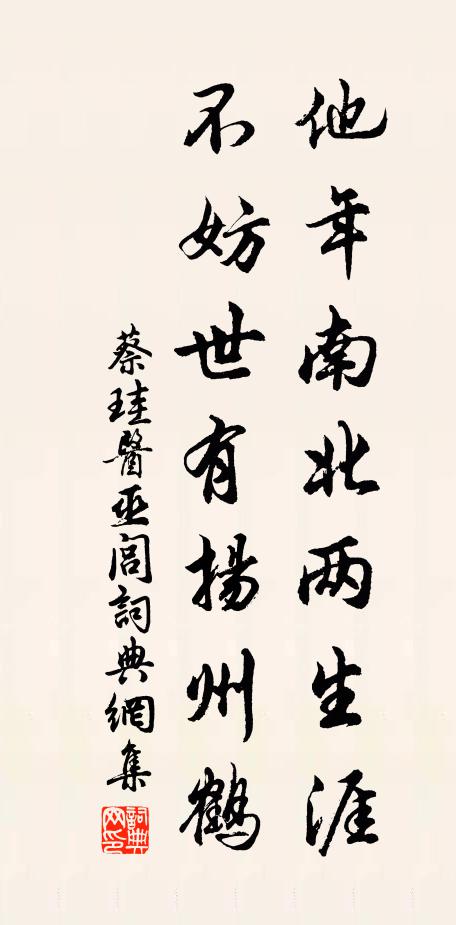 他年南北两生涯
不妨世有揚州鶴
蔡珪醫巫閭詞典網集
詞典网印